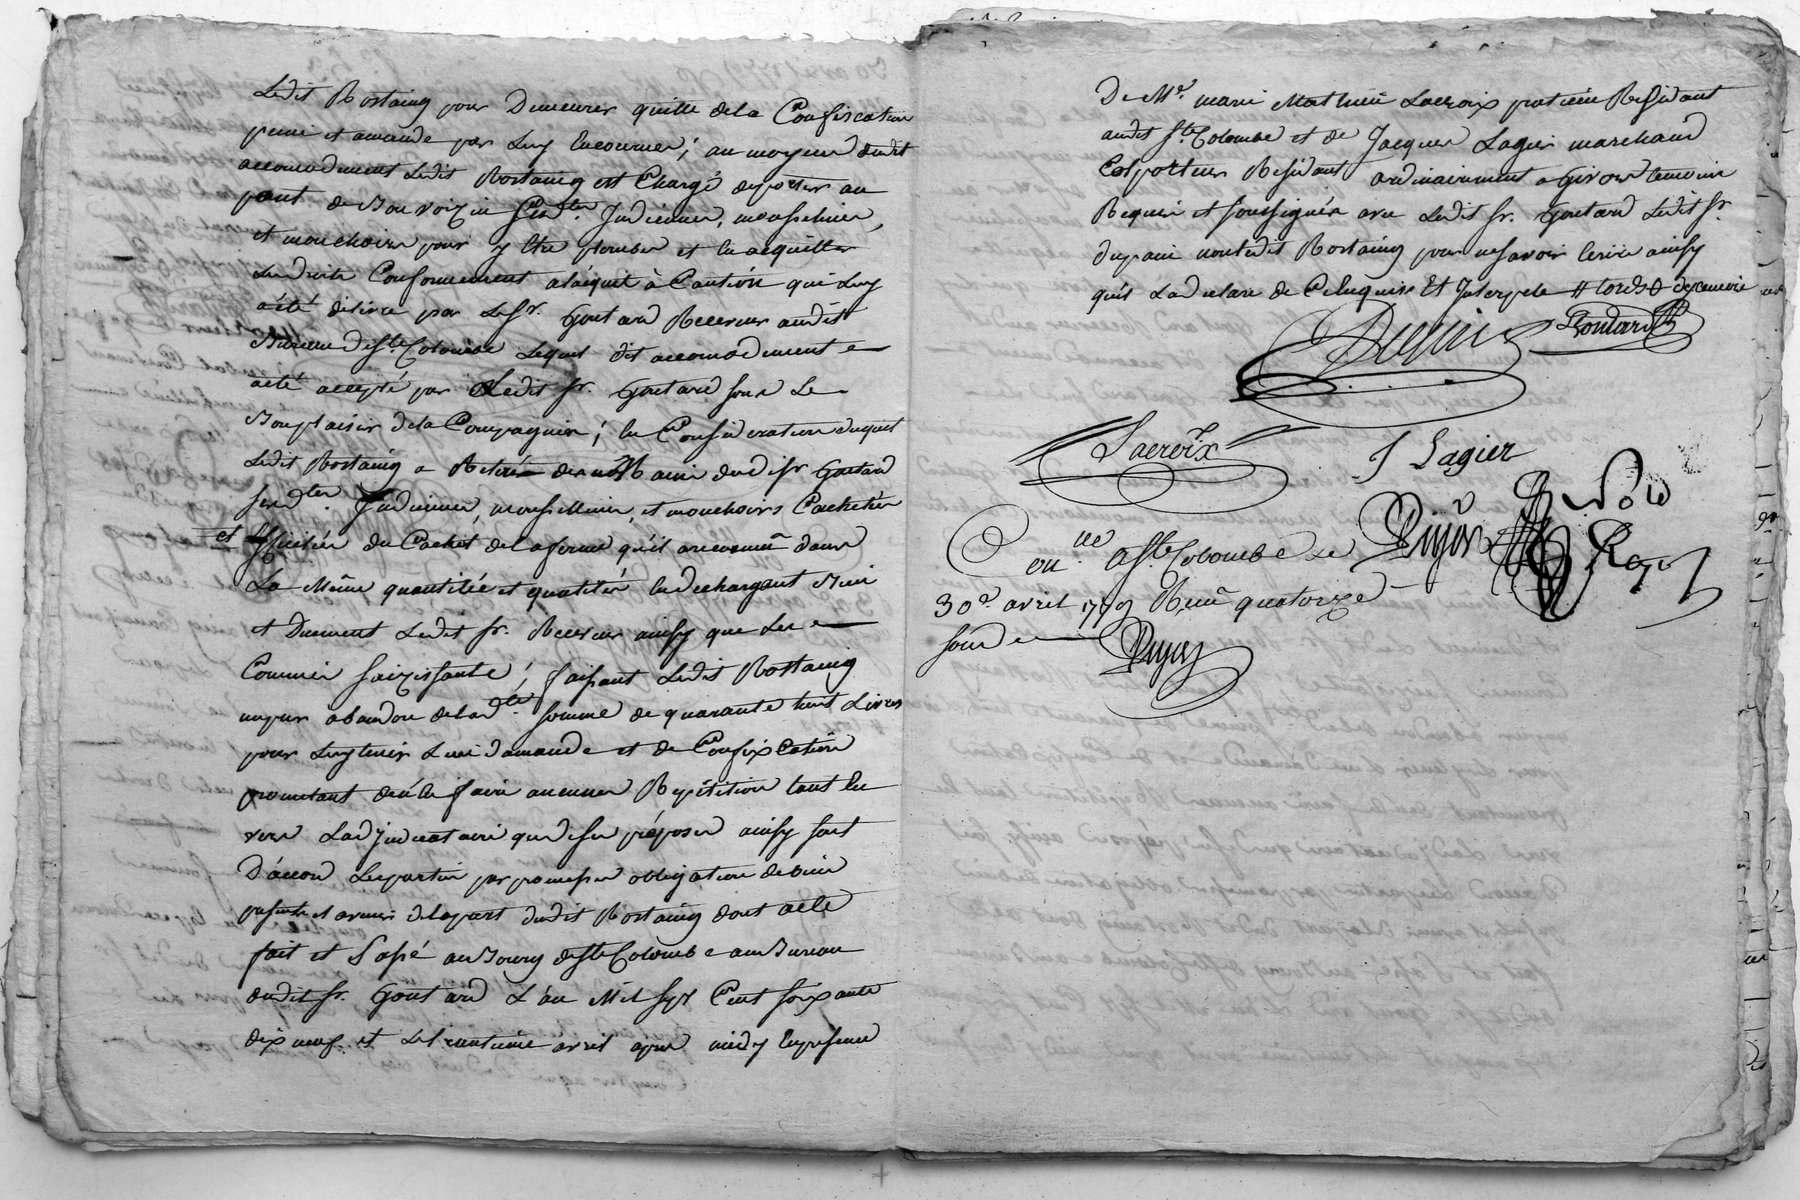 Ledit Rostaing pour Demeurer quitte dela Confiscation
peine et amande par Luy Encourues; au moyen dudit
accomodement Ledit Rostaing est Chargé deporter au
pont de Bonvoizin Lesdtes Indiennes, mousselines,
et mouchoirs pour y Etre plombés et En acquitter
Les droits Conformement alacquit à Caution qui Luy
aété délivré par Le Sr. Goutard Receveur audit
Bureau de Ste Colombe Lequel dit accomodement
aété accepté par Ledit Sr. Goutard sous Le
Bonplaisir dela Compagnie; En Consideration duquel
Ledit Rostaing a Retiré des Mains dudit Sr Goutard
Lesdtes Indiennes, mousselines, et mouchoirs Cachetés
et du Cachet delaferme qu'il areconnu dans
La Même quantitée et qualités Endechargeant Bien
et Duement Ledit Sr. Receveur ainsy que Les
Commis saizissants; faisant Ledit Rostaing
abandon delad.te somme de quarante huit Livres
pour Luytenir Lieu damande et de Confiscation
prometant den'En faire aucunes Répétition tant En
vers Ladjudicataire que desses préposés ainsy fait
D'accord Lesparties par promesses obligation debiens
presents et avenir delapart dudit Rostaing dont acte
fait et Passé au Bourg de Ste Colombe au Bureau
dudit Sr. Goutard L'an Mil sept Cent soixante
dix neuf et Le trentieme avril apres midy Enpresence
De Mr. marie Mathieu Lacroix praticien Residant
audit Ste Colombe et de Jacques Lagier marchand
Colporteur Residant ordinairement a Givors temoins
Requis et soussignés avec Ledit Sr. Goutard Ledit Sr.
dupain nonledit Rostaing pour nesavoir Ecrire ainsy
quil Ladeclaré de Ce Enquis Et Interpelé
Dupin Goutard
Lacroix J Lagier
Con.lle a Ste Colombe Le
30e avril 1779 Reçu quatorze
sous